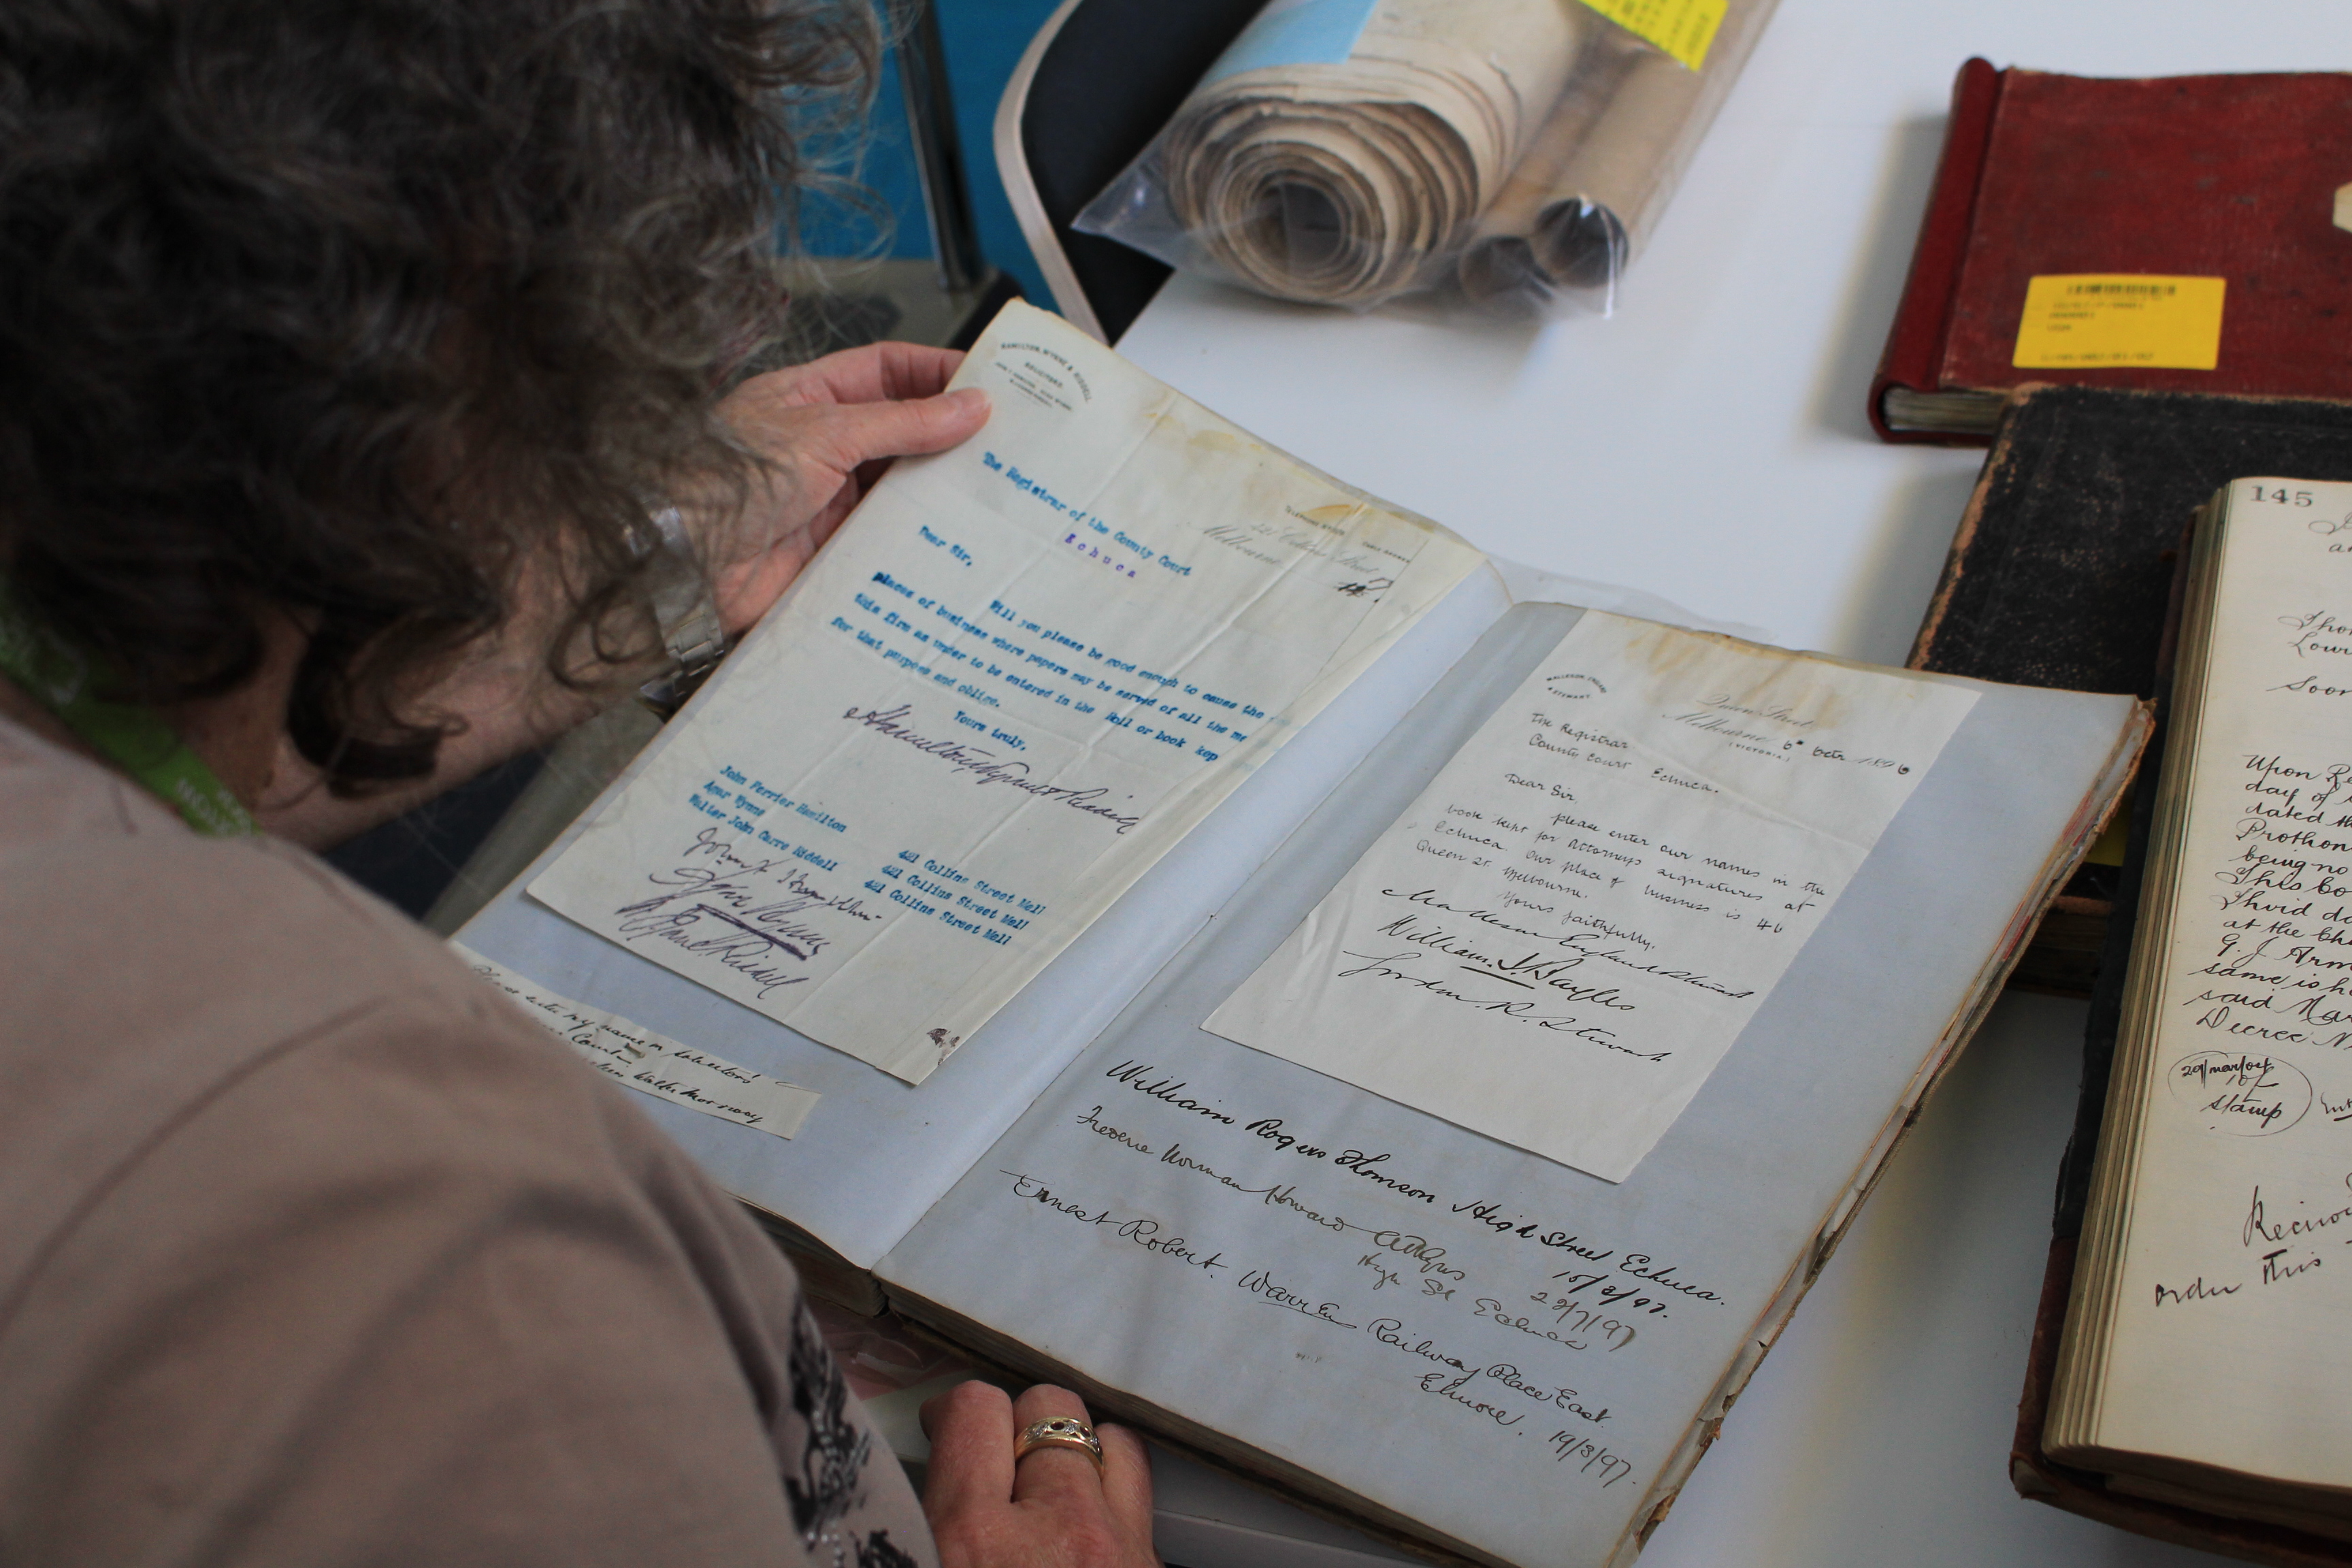 HAMILTON, WYNNE & RIDDELL
SOLICITORS.
421 Collins Street
Melbourne
The Registrar of the County Court
Echuca
Dear Sir,
Will you please be good enough to cause the
places of business where papers may be served of all the me
this firm as under to be entered in the Roll or book kep
for that purpose and oblige.
Yours truly,
Hamilton, Wynne & Riddell
John Ferrier Hamilton 421 Collins Street Mell
Agar Wynne 421 Collins Street Mell
Walter John Carre Riddell 421 Collins Street Mell
Agar Wynne
W J Carre Riddell
Please enter my name on Solicitors'
Court
MALLESON, ENGLAND
& STEWART
Queen Street
Melbourne 6th Octr 1896
(VICTORIA)
The Registrar
County Court Echuca.
Dear Sir,
please enter our names in the
book kept for Attorneys signatures at
Echuca. Our place of business is 46
Queen St. Melbourne.
Yours faithfully.
Malleson England & Stewart
William. J. Sayles
Gordon. R. Stewart
William Rogers Thomson High Street Echuca.
15/3/97.
Frederic Norman Howard
29/7/97
High St Echuca
Ernest Robert. Warren Railway Place East.
Elmore. 19/3/97.
145
Upon Re
day of
dated th
Prothon
being no
This Co
at the Ch
G. J. Arm
same is h
said Mar
Decree N
29/mar/04
10/-
stamp
order this